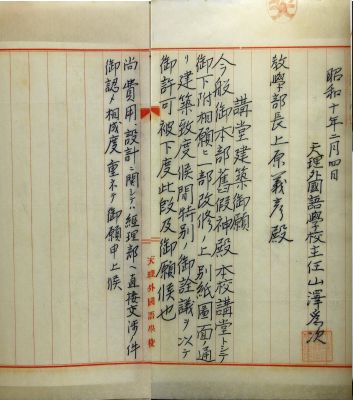 昭和十年二月四日
天理外國語學校主任山澤為次
教學部長上原義彦殿
講堂建築御願
今般御本部舊假神殿本校講堂トシテ
御下附相願ヒ一部改修ノ上別紙圖面ノ通
リ建築致度候間特別ノ御詮議ヲ以テ
御許可被下度此段及御願候也
尚費用、設計ニ関シテハ經理部ヘ直接交渉ノ件
御認メ相成度重ネテ御願申上候
天理外國語學校